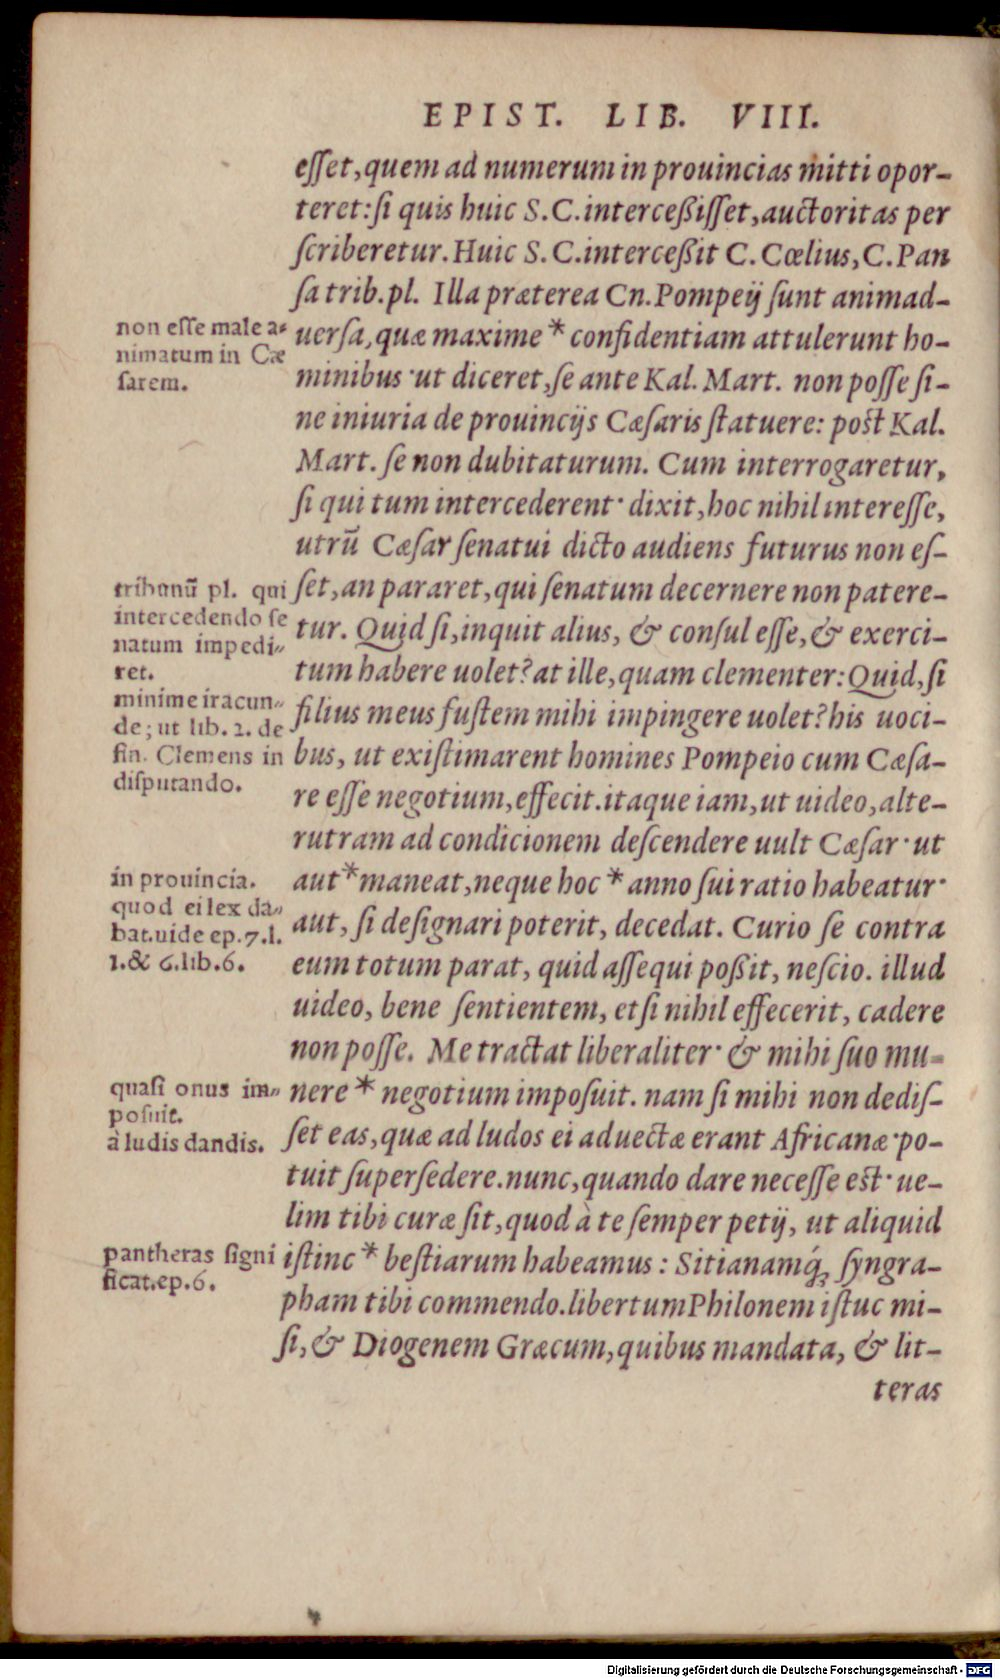 EPIST. LIB. VIII.
esſet, quem ad numerum in prouincias mitti opor-
teret: ſi quis huic S.C. interceßiſſet, auctoritas per
ſcriberetur. Huic S.C. interceßit C. Cœlius, C. Pan
ſa trib. pl. Illa præterea Cn. Pompeij ſunt animad-
uerſa, quæ maxime * confidentiam attulerunt ho-
minibus· ut diceret, ſe ante Kal. Mart. non poſſe ſi-
ne iniuria de prouincijs Cæſaris ſtatuere: poſt Kal.
Mart. ſe non dubitaturum. Cum interrogaretur,
ſi qui tum intercederent· dixit, hoc nihil intereſſe,
utrũ Cæſar ſenatui dicto audiens futurus non eſ-
ſet, an pararet, qui ſenatum decernere non patere-
tur. Quid ſi, inquit alius, & conſul eſſe, & exerci-
tum habere uolet? at ille, quam clementer: Quid, ſi
filius meus fuſtem mihi impingere uolet? his uoci-
bus, ut exiſtimarent homines Pompeio cum Cæſa-
re eſſe negotium, effecit. itaque iam, ut uideo, alte-
rutram ad condicionem deſcendere uult Cæſar· ut
aut * maneat, neque hoc * anno ſui ratio habeatur·
aut, ſi deſignari poterit, decedat. Curio ſe contra
eum totum parat, quid aſſequi poßit, neſcio. illud
uideo, bene ſentientem, etſi nihil effecerit, cadere
non poſſe. Me tractat liberaliter· & mihi ſuo mu-
nere * negotium impoſuit. nam ſi mihi non dediſ-
ſet eas, quæ ad ludos ei aduectæ erant Africanæ· po-
tuit ſuperſedere. nunc, quando dare neceſſe eſt· ue-
lim tibi curæ ſit, quod à te ſemper petij, ut aliquid
iſtinc * beſtiarum habeamus: Sitianamq́ꝫ ſyngra-
pham tibi commendo. libertum Philonem iſtuc mi-
ſi, & Diogenem Græcum, quibus mandata, & lit-
teras
non eſſe male a-
nimatum in Cæ
ſarem.
tribunũ pl. qui
intercedendo ſe
natum impedi-
ret.
minime iracun-
de; ut lib. 2. de
fin. Clemens in
diſputando.
in prouincia.
quod ei lex da-
bat. uide ep. 7. l.
1. & 6. lib. 6.
quaſi onus im-
poſuit.
à ludis dandis.
pantheras ſigni
ficat. ep. 6.
Digitalisierung gefördert durch die Deutsche Forschungsgemeinschaft - DFG